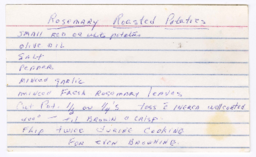 Rosemary Roasted Potatoes
small red or white potatoes
olive oil
salt
pepper
minced garlic
minced fresh rosemary leaves
Cut Pot. 1/2 or 1/4's toss c ingred
400° - til brown + crisp
Flip twice during cooking
for even browning.